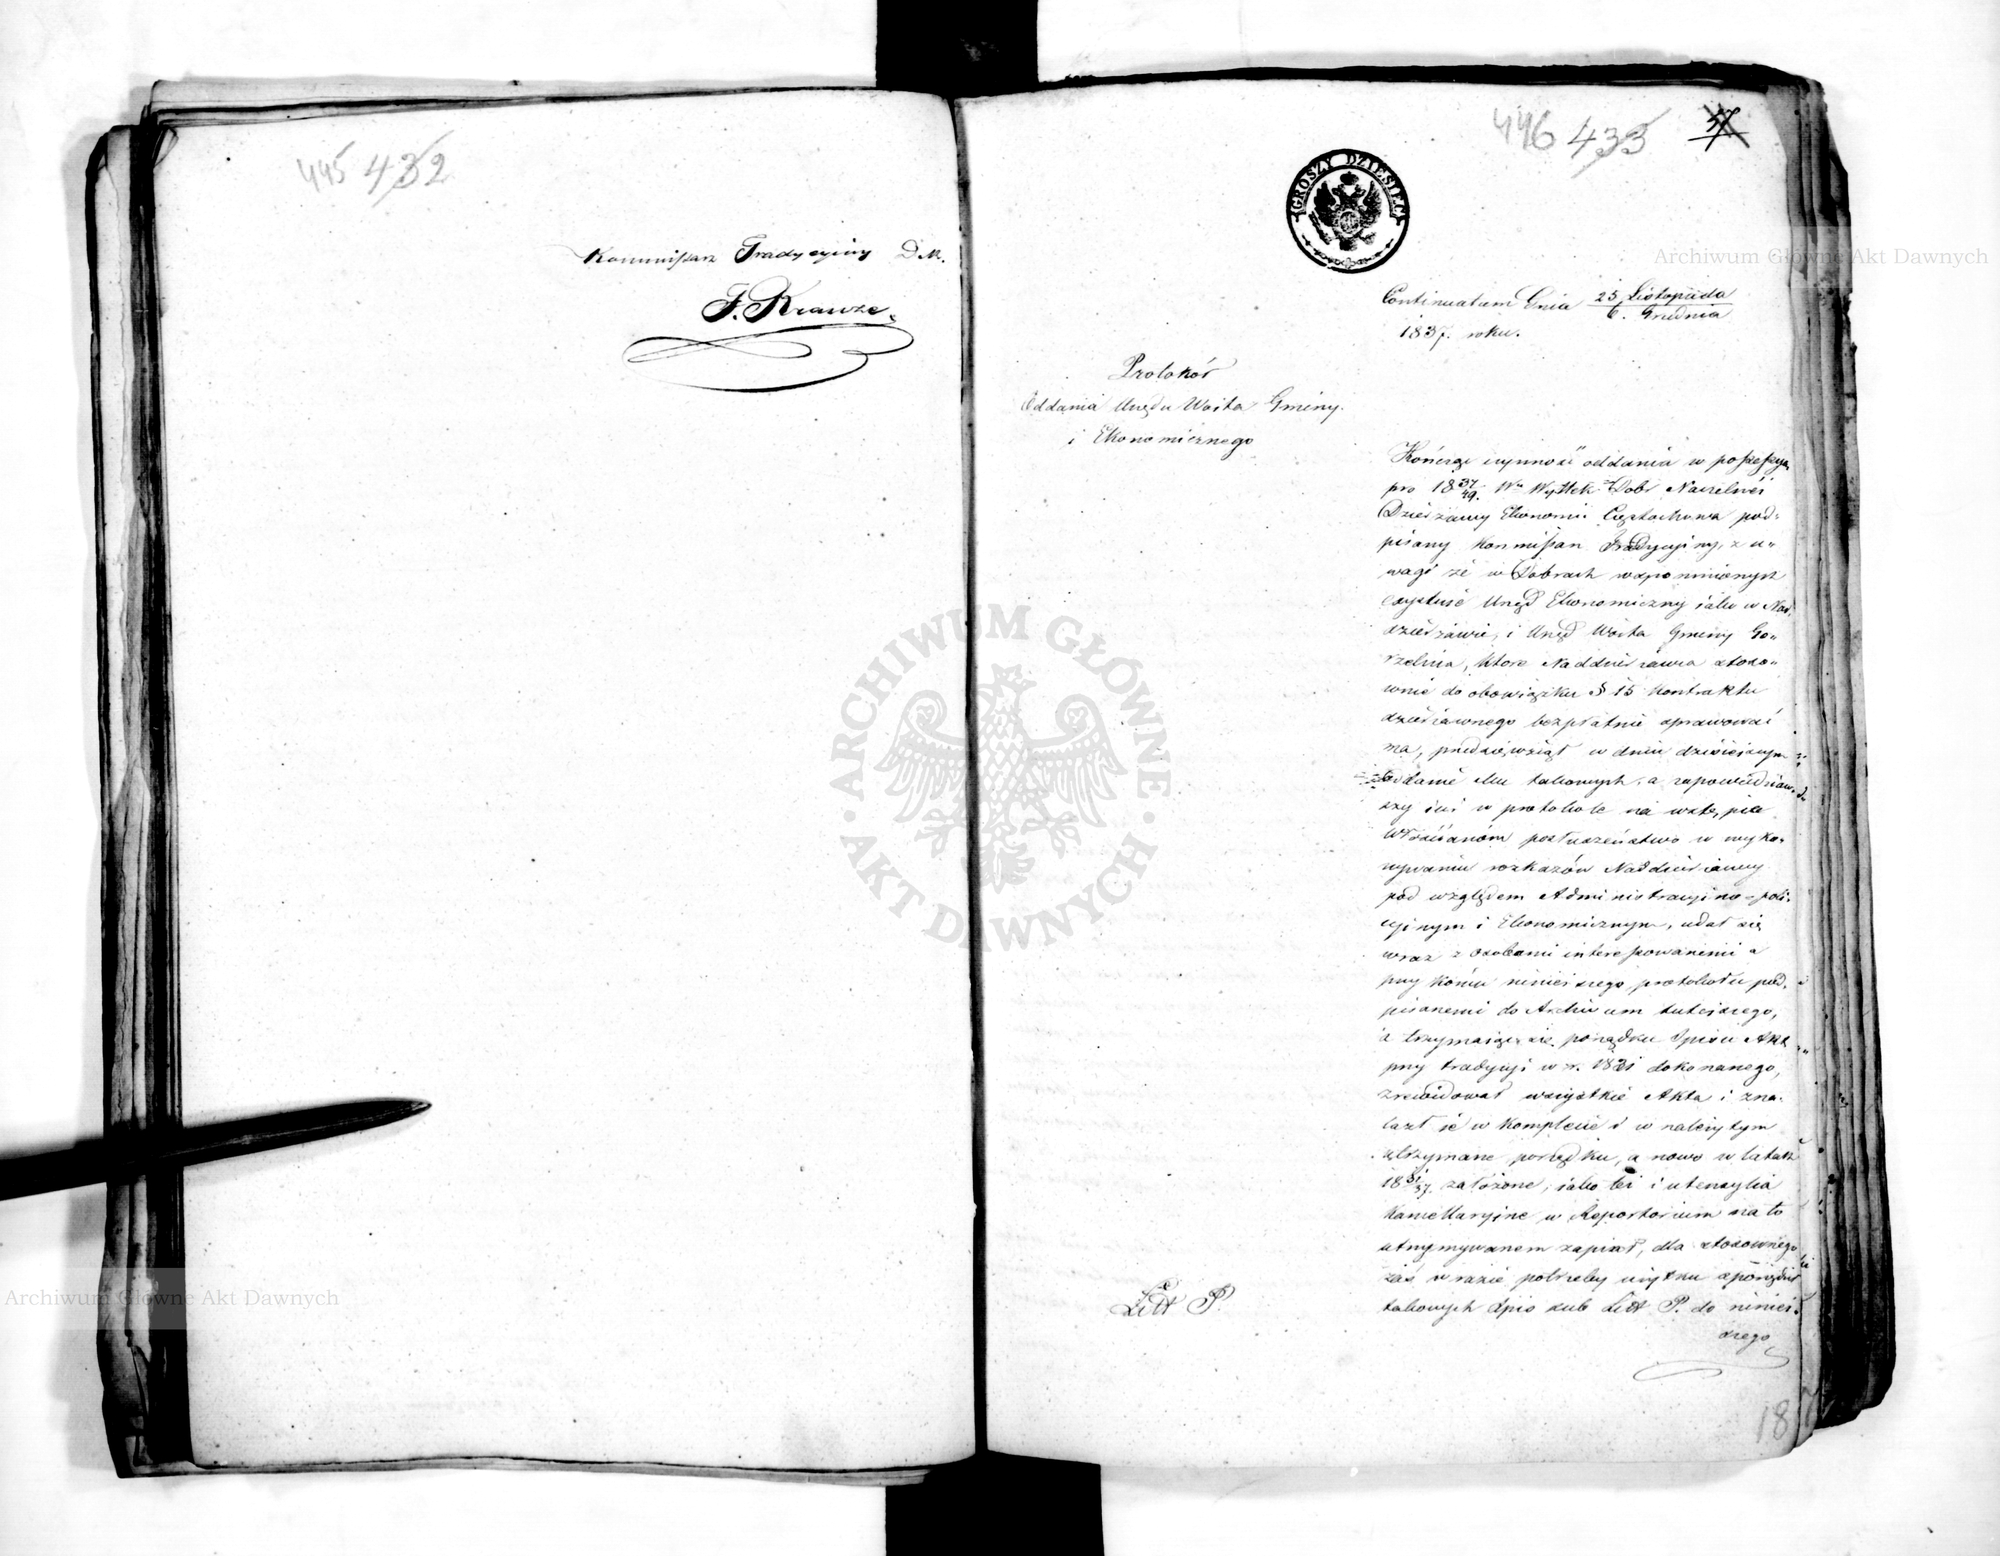 445 432
Kommissarz Tradycyiny D. M.
J. Krauze.
446 433 37
GROSZY DZIESIĘĆ
Continuatum Dnia 25 Listopada
6. Grudnia
1837. roku.
Protokół
Oddania Urzędu Woita Gminy.
i Ekonomicznego
Kończąc czynność oddania w possessyą
pro 18 37/49. Dobr Narzelność
Dzierżawy Ekonomii Częstochowa pod-
pisany Kommissarz Tradycyiny, z u-
wagi że w Dobrach wspomnionych
exystuie Urząd Ekonomiczny iako w Nad-
dzierżawie, i Urząd Woita Gminy Go-
rzelnia, które Naddzierżawca stoso-
wnie do obowiązku § 15 Kontraktu
dzierżawnego bezpłatnie sprawować
ma, przedsięwziął w dniu dzisieiszym
oddanie Mu takowych, a zapowiedziaw-
szy iuż w protokole na wstępie
Włościanóm posłuszeństwo w wyko-
nywaniu rozkazów Naddzierżawcy
pod względem Administracyjno-poli-
cyjnym i Ekonomicznym, udał się
wraz z osobami interessowanemi a
przy końcu ninieiszego protokołu pod-
pisanemi do Archiwum tuteiszego,
a trzymaiąc się porządku Spisu Akt
przy tradycyi w r. 1831 dokonanego,
zrewidował wszystkie Akta i zna-
lazł ie w komplecie i w należytym
utrzymane porządku, a nowo w latach
18 31/37. założone, iako też i utensylia
Kancellaryjne w Repertorium na to
utrzymywanem zapisał, dla stosownego
zaś w razie potrzeby użytku sporządził
takowych Spis sub Litt P. do niniei-
szego
Litt P.
18
ARCHIWUM GŁÓWNE
AKT DAWNYCH
Archiwum Główne Akt Dawnych
Archiwum Główne Akt Dawnych